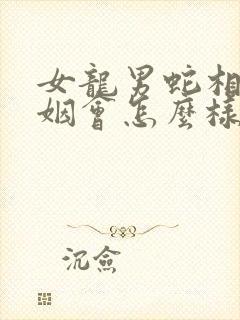 女龍男蛇相
姻會怎麼樣
沉僉